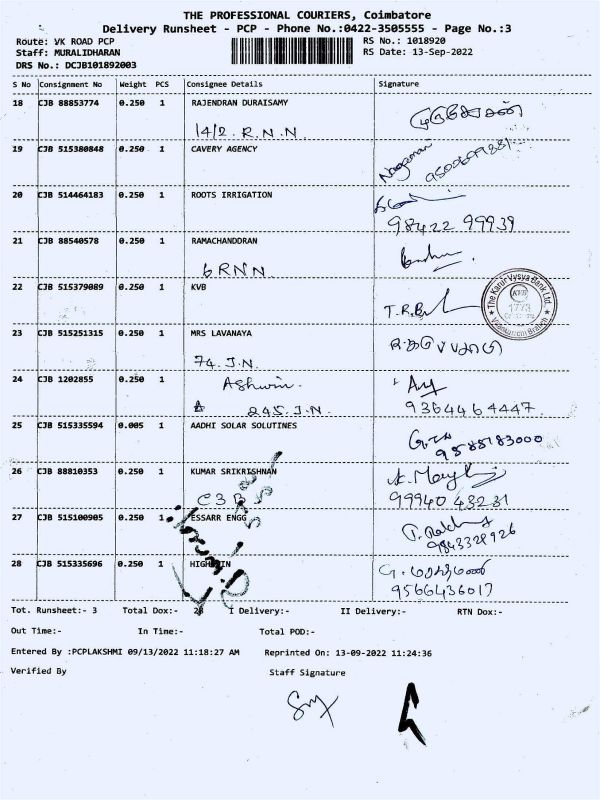 THE PROFESSIONAL COURIERS, Coimbatore
Delivery Runsheet - PCP - Phone No.:0422-3505555 - Page No.:3
Route: VK ROAD PCP RS No.: 1018920
Staff: MURALIDHARAN RS Date: 13-Sep-2022
DRS No.: DCJB101892003
S No Consignment No Weight PCS Consignee Details Signature
18 CJB 88853774 0.250 1 RAJENDRAN DURAISAMY
14/2. R.N.N
19 CJB 515380848 0.250 1 CAVERY AGENCY
Nagamani
20 CJB 514464183 0.250 1 ROOTS IRRIGATION
98422 99939
21 CJB 88540578 0.250 1 RAMACHANDDRAN
6 RNN
22 CJB 515379089 0.250 1 KVB
The Karur Vysya Bank Ltd.
KVB
1773
23 CJB 515251315 0.250 1 MRS LAVANAYA
74. J.N.
24 CJB 1202855 0.250 1 Ashwin.
245. J.N. 9364464447.
25 CJB 515335594 0.005 1 AADHI SOLAR SOLUTINES
9585183000
26 CJB 88810353 0.250 1 KUMAR SRIKRISHNAN
C3B 99940 43231
27 CJB 515100905 0.250 1 ESSARR ENGG
9843328926
28 CJB 515335696 0.250 1
9566436017
Tot. Runsheet:- 3 Total Dox:- 28 I Delivery:- II Delivery:- RTN Dox:-
Out Time:- In Time:- Total POD:-
Entered By :PCPLAKSHMI 09/13/2022 11:18:27 AM Reprinted On: 13-09-2022 11:24:36
Verified By Staff Signature